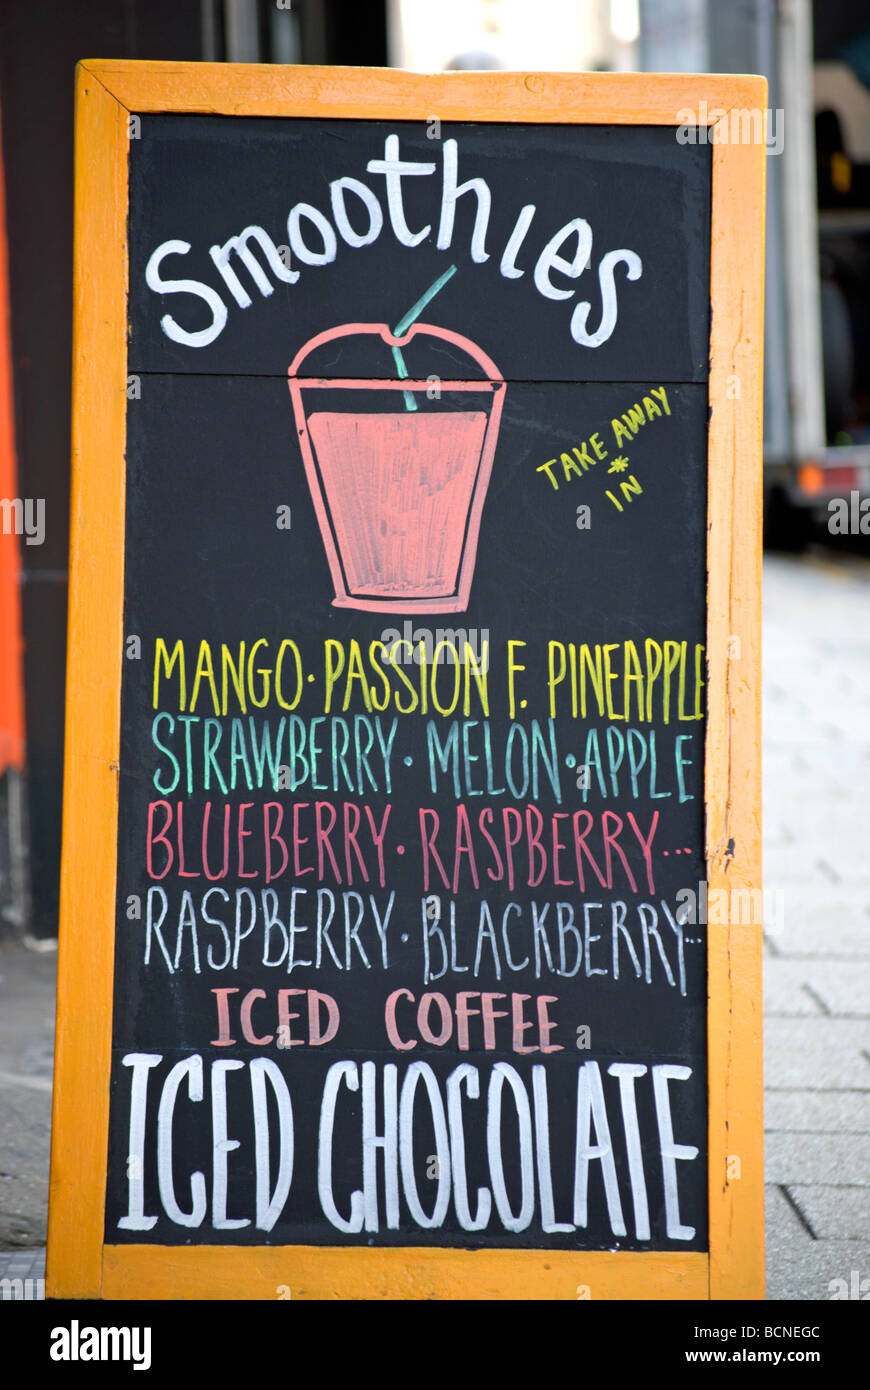 Smoothies
TAKE AWAY
*
IN
MANGO · PASSION F. PINEAPPLE
STRAWBERRY · MELON · APPLE
BLUEBERRY · RASPBERRY...
RASPBERRY · BLACKBERRY...
ICED COFFEE
ICED CHOCOLATE
alamy
Image ID: BCNEGC
www.alamy.com